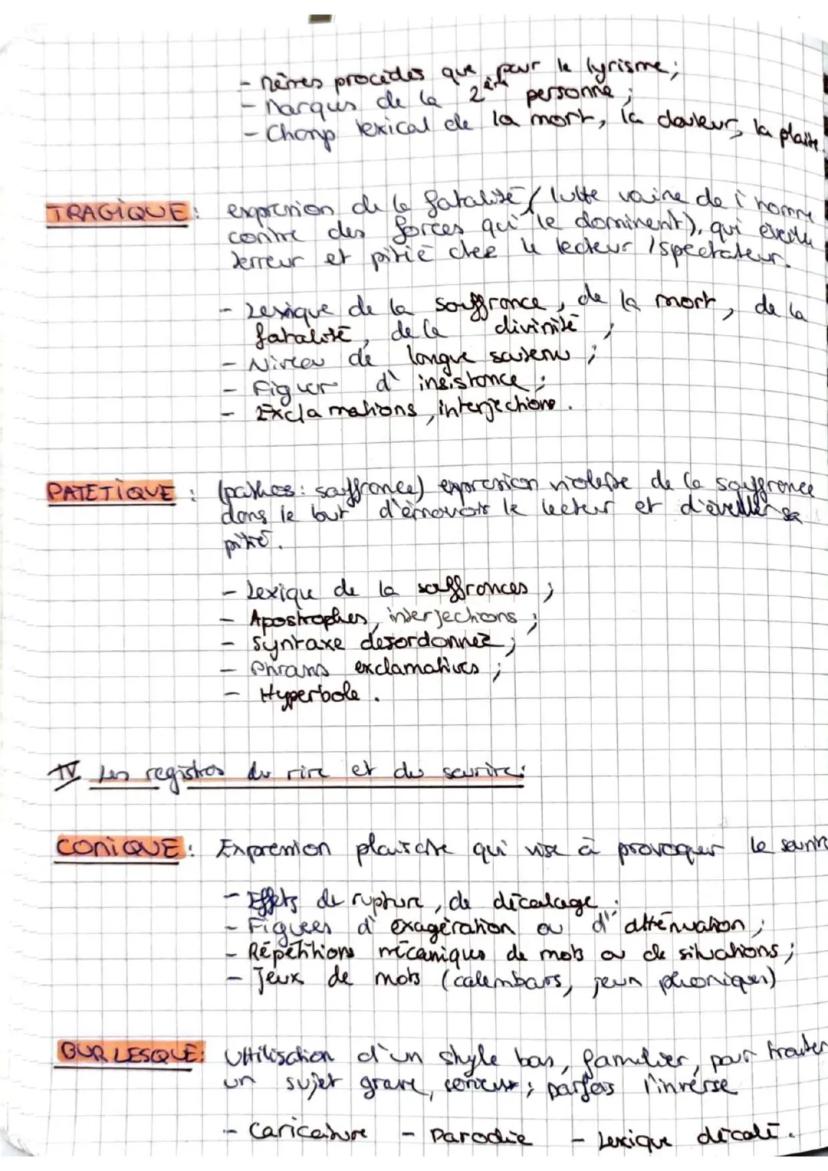 - Mêmes procédés que pour le lyrisme ;
- Marques de la 2ème personne ;
- Champ lexical de la mort, la douleur, la plainte.
TRAGIQUE : expression de la fatalité (lutte vaine de l'homme
contre des forces qui le dominent), qui éveille
terreur et pitié chez le lecteur / spectateur.
- Lexique de la souffrance, de la mort, de la
fatalité, de la divinité ;
- Niveau de langue soutenu ;
- Figure d'insistance ;
- Exclamations, interjections.
PATETIQUE : (pathos : souffrance) expression violente de la souffrance
dans le but d'émouvoir le lecteur et d'éveiller sa
pitié.
- Lexique de la souffrances ;
- Apostrophes, interjections ;
- Syntaxe desordonnée ;
- Phrases exclamatives ;
- Hyperbole.
IV Les registres du rire et du sourire :
COMIQUE : Expression plaisante qui vise à provoquer le sourire
- Effets de rupture, de décalage ;
- Figures d'exagération ou d'atténuation ;
- Répétitions mécaniques de mots ou de situations ;
- Jeux de mots (calembours, jeux phoniques)
BURLESQUE : Uttilisation d'un style bas, familier, pour traiter
un sujet grave, sérieux ; parfois l'inverse
- Caricature - Parodie - Lexique décalé.